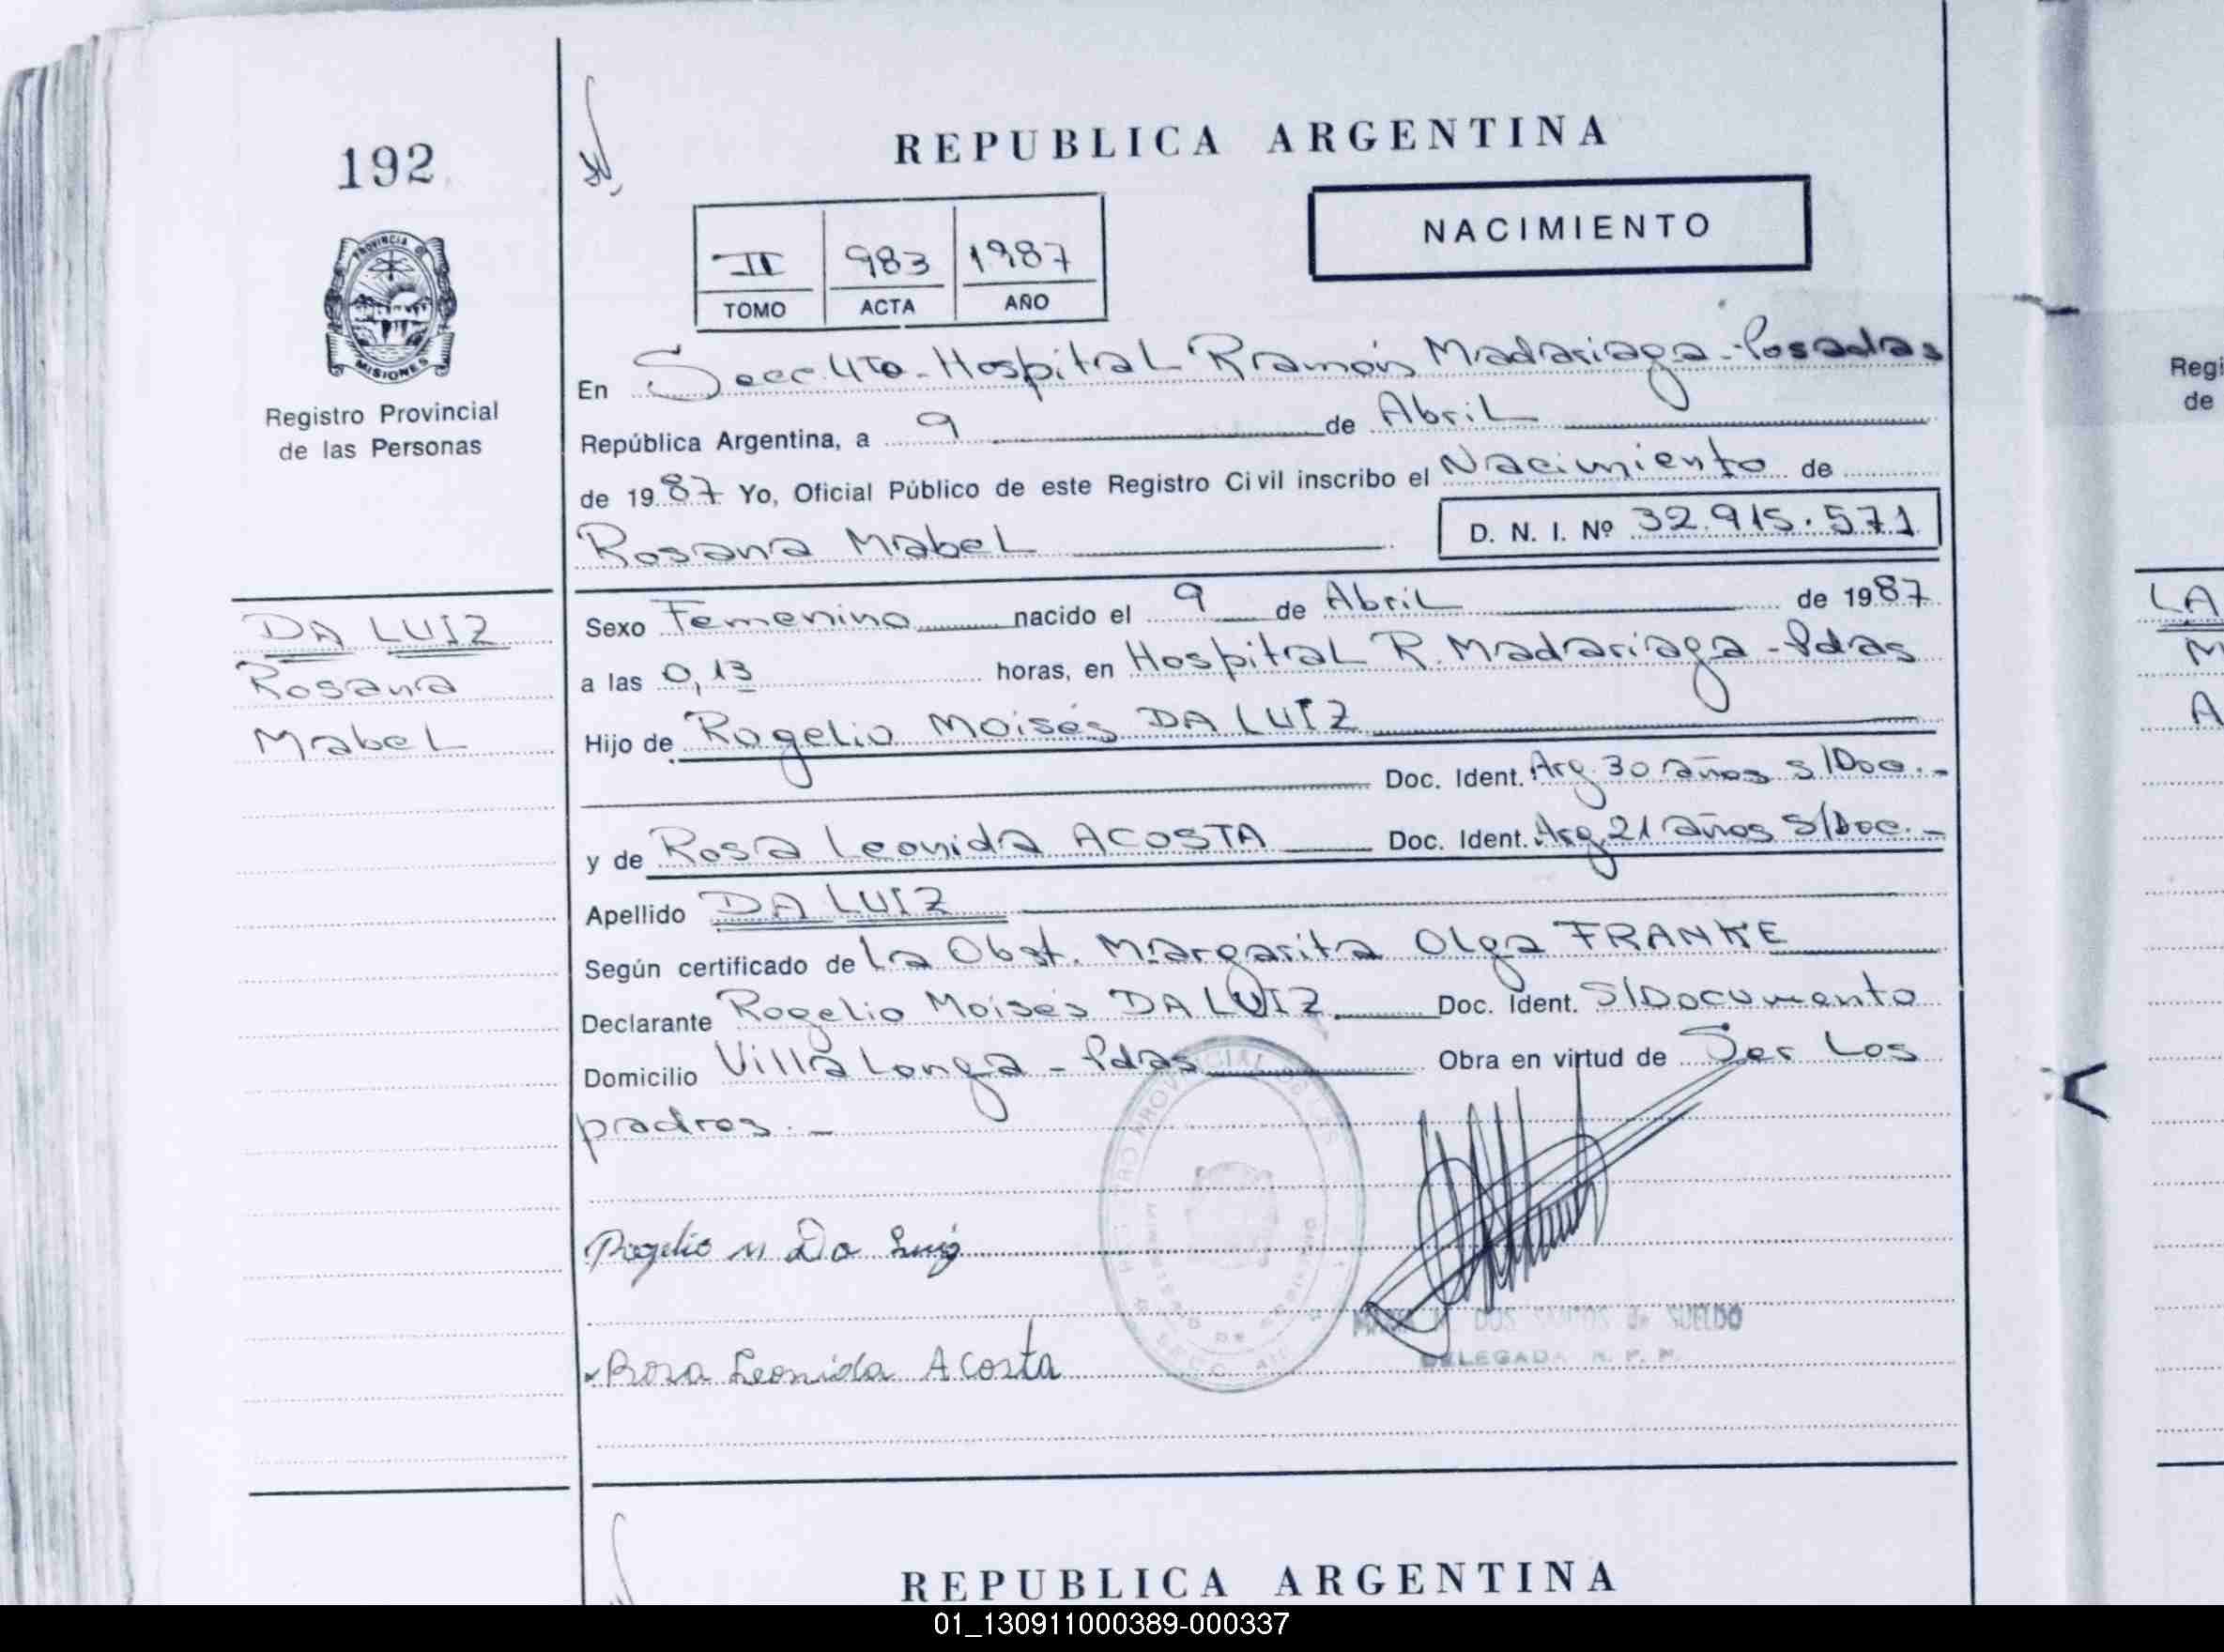 192
PROVINCIA DE
MISIONES
Registro Provincial
de las Personas
DA LUIZ
Rosana
Mabel
REPUBLICA ARGENTINA
NACIMIENTO
II 983 1987
TOMO ACTA AÑO
En Secc. 4ta - Hospital Ramón Madariaga - Posadas
República Argentina, a 9 de Abril
de 1987 Yo, Oficial Público de este Registro Civil inscribo el Nacimiento de
Rosana Mabel D. N. I. Nº 32.915.571
Sexo Femenino nacido el 9 de Abril de 1987
a las 0,13 horas, en Hospital R. Madariaga - Pdas
Hijo de Rogelio Moisés DA LUIZ
Doc. Ident. Arg. 30 años S/Doc. -
y de Rosa Leonida ACOSTA Doc. Ident. Arg. 21 años S/Doc. -
Apellido DA LUIZ
Según certificado de La Obst. Margarita Olga FRANKE
Declarante Rogelio Moisés DA LUIZ Doc. Ident. S/Documento
Domicilio Villa Longa - Pdas Obra en virtud de Ser Los
padres. -
Rogelio M Da Luiz
DOS SANTOS de SUELDO
DELEGADA R. P. P.
Rosa Leonida Acosta
REPUBLICA ARGENTINA
Regi
de
LA
M
A
01_130911000389-000337